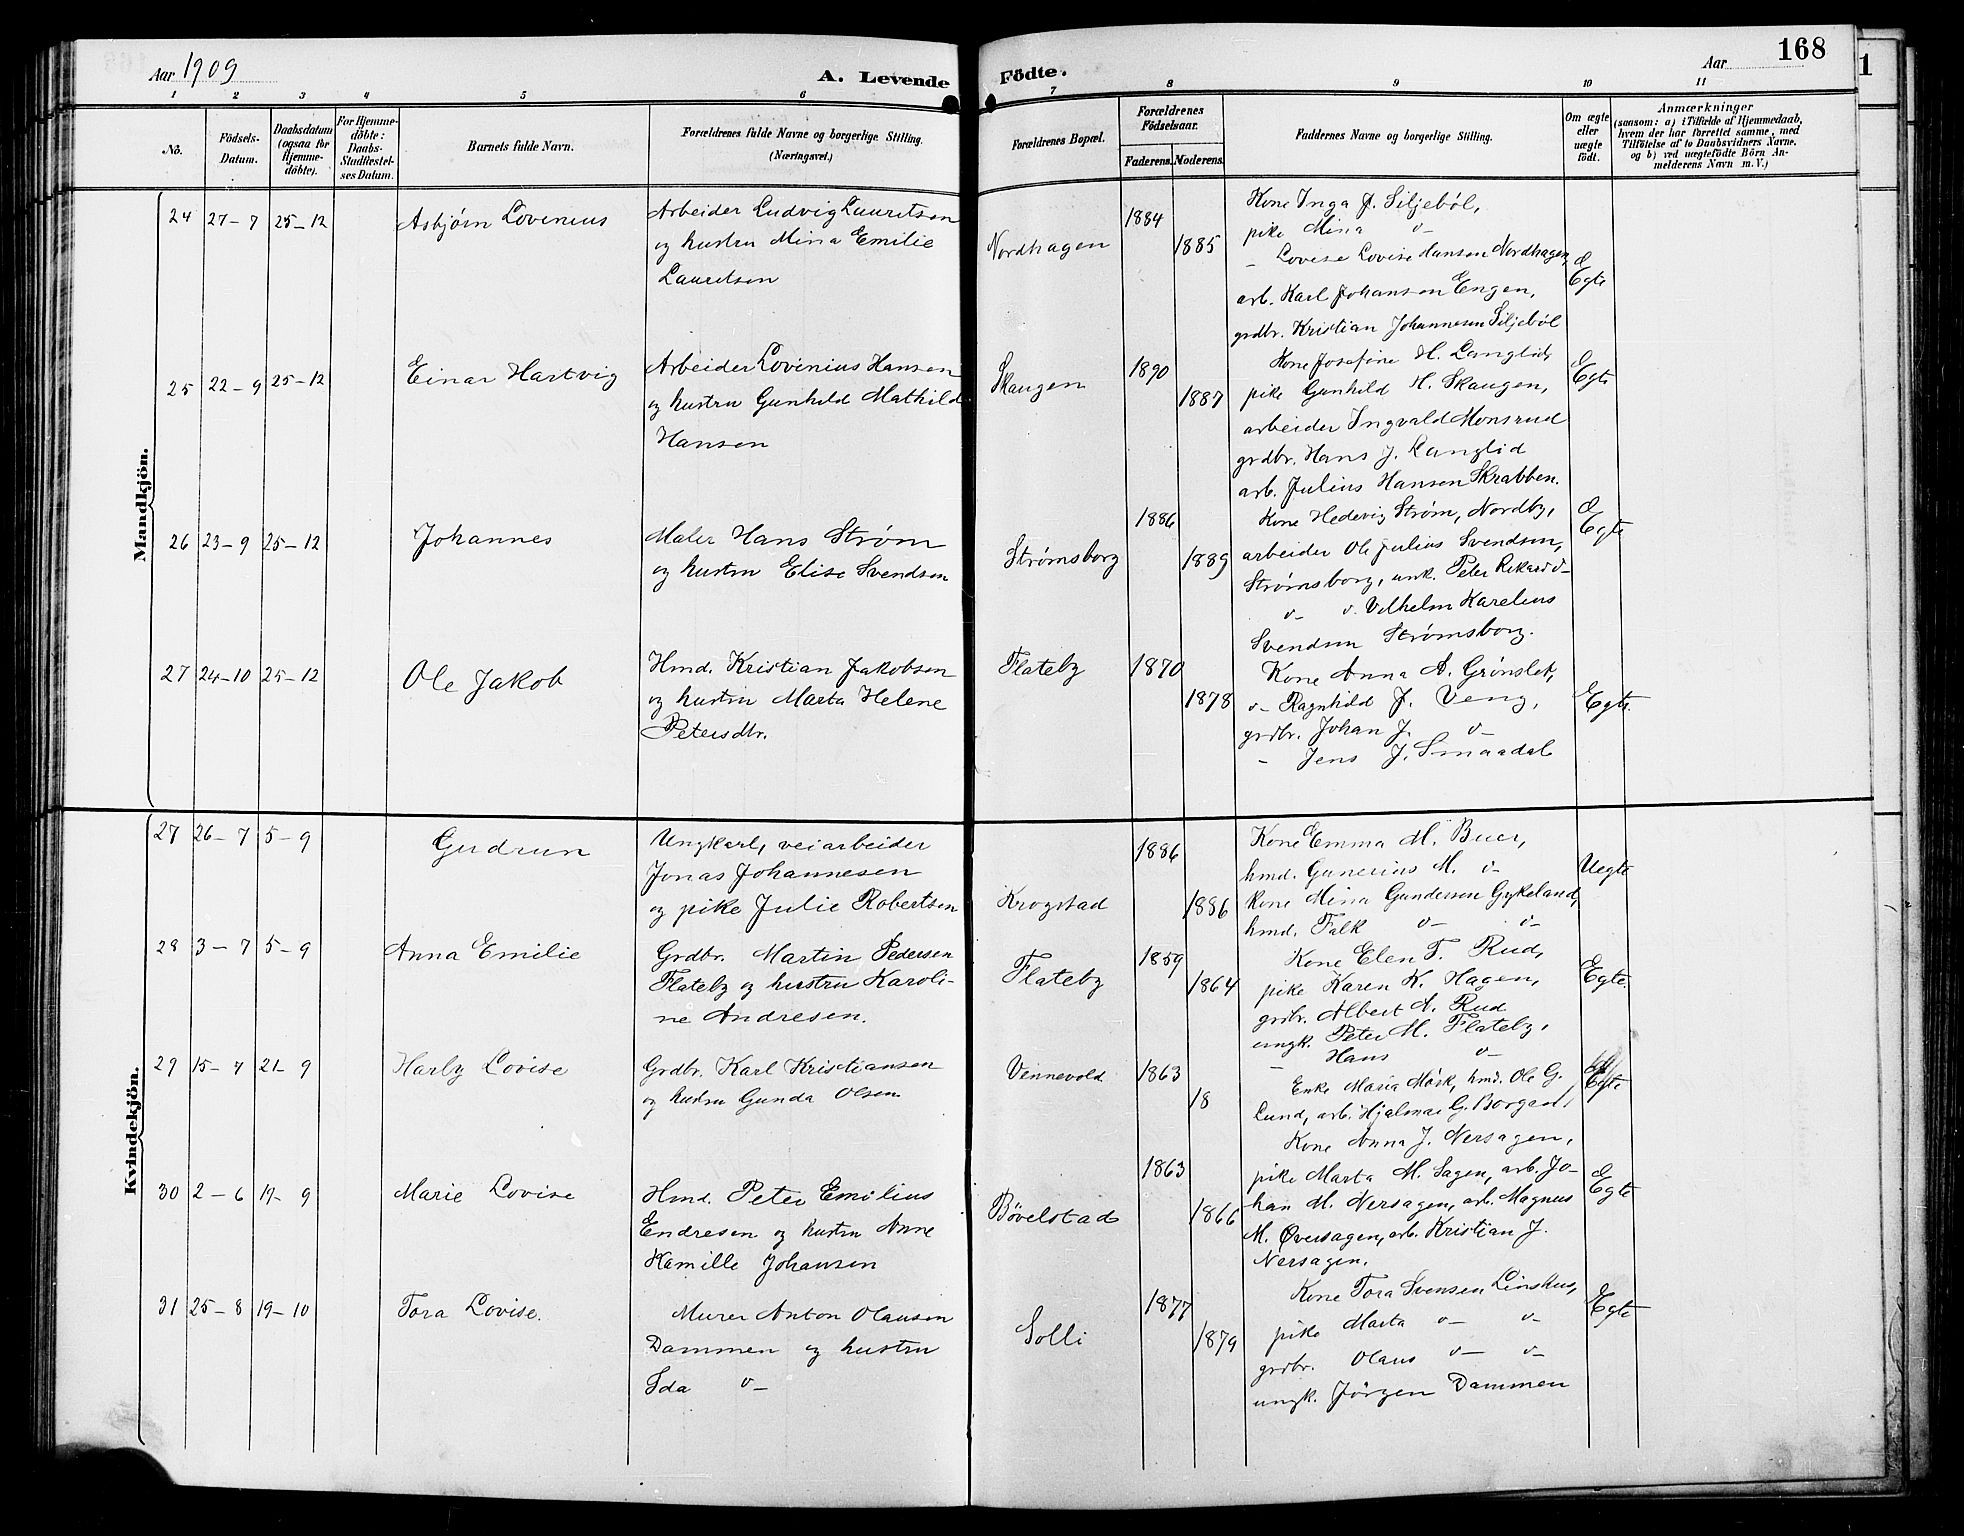 Aar 1909
A. Levende Födte.
Aar
168
1
1 2 3 4 5 6 7 8 9 10 11
No.
Födsels-Datum.
Daabsdatum (ogsaa for Hjemme-döbte).
For Hjemme-döbte: Daabs-Stadfæstel-ses Datum.
Barnets fulde Navn.
Forældrenes fulde Navne og borgerlige Stilling. (Næringsvei.)
Forældrenes Bopæl.
Forældrenes Födselsaar.
Faderens. Moderens.
Faddernes Navne og borgerlige Stilling.
Om ægte eller uægte født.
Anmærkninger
(saasom: a) i Tilfælde af Hjemmedaab,
hvem der har forrettet samme, med
Tilföielse af to Daabsvidners Navne,
og b) ved uægtefödte Börn An-
melderens Navn m. V.)
Mandkjön.
24 27-7 25-12 Asbjörn Lovinius
Arbeider Ludvig Lauritsen
og hustru Mina Emilie
Lauritsen
Nordhagen 1884 1885
Kone Inga J. Siljeböl,
pike Mina v-
- Lovise Lovise Hansen Nordhagen,
arb. Karl Johansen Engen,
grdbr. Kristian Johannesen Siljeböl
Egte
25 22-9 25-12 Einar Hartvig
Arbeider Lovinius Hansen
og hustru Gunhild Mathild
Hansen
Skaugen 1890 1887
Kone Josefine H. Langlid,
pike Gunhild M. Skaugen,
arbeider Ingvald Monsrud
grdbr. Hans J. Langlid
arb. Julius Hansen Skrabben.
Egte
26 23-9 25-12 Johannes
Maler Hans Strøm
og hustru Elise Svendsen
Strømsborg 1886 1889
Kone Hedevig Strøm, Nordby,
arbeider Ole Julius Svendsen,
Strømsborg, unk. Peter Rikard v-
v- v. Vilhelm Karelius
Svendsen Strømsborg.
Egte
27 24-10 25-12 Ole Jakob
Hmd. Kristian Jakobsen
og hustru Marta Helene
Petersdtr.
Flateby 1870 1878
Kone Anna A. Grønslet,
v- Ragnhild J. Veng,
grdbr. Johan J. v-
- Jens J. Smaadal
Egte.
Kvindekjön.
27 26-7 5-9 Gudrun
Ungkarl, veiarbeider
Jonas Johannesen
og pike Julie Robertsen
Krogstad 1886 1886
Kone Emma M. Buer,
hmd. Gunerius M. v-
kone Mina Gundersen Gykeland,
hmd. Falk v- v-
Uegte
28 3-7 5-9 Anna Emilie
Grdbr. Martin Pedersen
Flateby og hustru Karoli-
ne Andresen.
Flateby 1859 1864
Kone Elen T. Rud,
pike Karen K. Hagen,
grdbr. Albert A. Rud
ungk. Peter M. Flateby,
- Hans v-
Egte.
29 15-7 21-9 Harly Lovise
Grdbr. Karl Kristiansen
og hustru Gunda Olsen
Vennevold 1863 18
Enke Maria Mørk, hmd. Ole G.
Lund, arb. Hjalmar G. Borgen,
Egte
30 2-6 19-9 Marie Lovise
Hmd. Peter Emilius
Endresen og hustru Anne
Kamille Johansen
Bövelstad 1863 1866
Kone Anna J. Nersagen,
pike Marta M. Sagen, arb. Jo-
han M. Nersagen, arb. Magnus
M. Øversagen, arb. Kristian J.
Nersagen.
Egte
31 25-8 19-10 Tora Lovise.
Murer Anton Olausen
Dammen og hustru
Ida v-
Solli 1877 1879
Kone Tora Svensen Linshus,
pike Marta v- v-
grdbr. Olaus v- v-
ungk. Jörgen Dammen
Egte